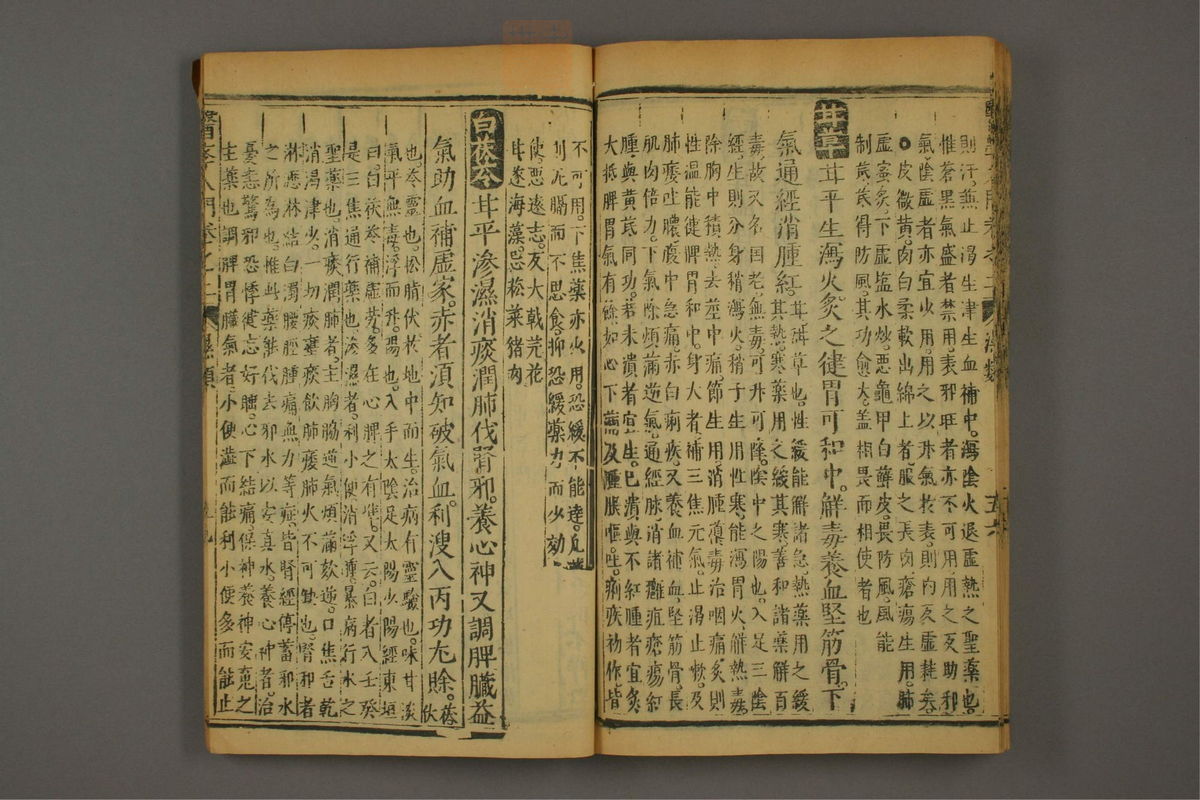 則汗無止渴生津生血補中瀉陰火退虛熱之聖藥也
惟蒼黑氣盛者禁用表邪旺者亦不可用用之反助邪
氣陰虛者亦宜少用用之以升氣於表則內反虛耗矣
●皮微黃肉白柔軟出綿上者服之長肉瘡瘍生用肺
虛蜜炙下虛塩水炒惡龜甲白蘚皮畏防風風能
制芪芪得防風其功愈大蓋相畏而相使者也
甘草 甘平生瀉火炙之健胃可和中解毒養血堅筋骨下
氣通經消腫紅甘甜草也性緩能解諸急熱藥用之緩
其熱寒藥用之緩其寒善和諸藥解百
毒故又名国老無毒可升可降陰中之陽也入足三陰
經生則分身稍瀉火稍子生用性寒能瀉胃火解熱毒
除胸中積熱去莖中痛節生用消腫導毒治咽痛炙則
性温能健脾胃和中身大者補三焦元氣止渴止嗽及
肺痿吐膿腹中急痛赤白痢疾又養血補血堅筋骨長
肌肉倍力下氣除煩滿逆氣通經脉消諸癰疽瘡瘍紅
腫與黃芪同功若未潰者宜生已潰與不紅腫者宜炙
大抵脾胃氣有餘如心下滿及腫脹嘔吐痢疾初作皆
不可用下焦藥亦少用恐緩不能達凡藥
則尤膈而不思食抑恐緩藥力而少効
使惡遠志反大戟芫花
甘遂海藻忌菘菜猪肉
白茯苓 甘平滲濕消痰潤肺伐腎邪養心神又調脾臟益
氣助血補虛家赤者須知破氣血利溲入丙功尤賒茯
也苓靈也松脂伏於地中而生治病有靈驗也味甘淡
氣平無毒浮而升陽也入手太陰足太陽少陽經東垣
曰白茯苓補虛勞多在心脾之有又云白者入壬癸
是三焦通行藥也滲濕者利小便消浮腫暴病行水之
聖藥也消痰潤肺者主胸脇逆氣煩滿欬逆口焦舌乾
消渴津少一切痰壅痰飲肺痿肺火不可缺也腎邪者
淋瀝林結白濁腰脛腫痛無力等症皆腎經停蓄邪水
之所為也惟此藥能伐去邪水以安真水養心神者治
憂恚驚邪恐悸健忘好睡心下結痛保神養神安魂之
主藥也調脾胃臟氣者小便澁而能利小便多而能止